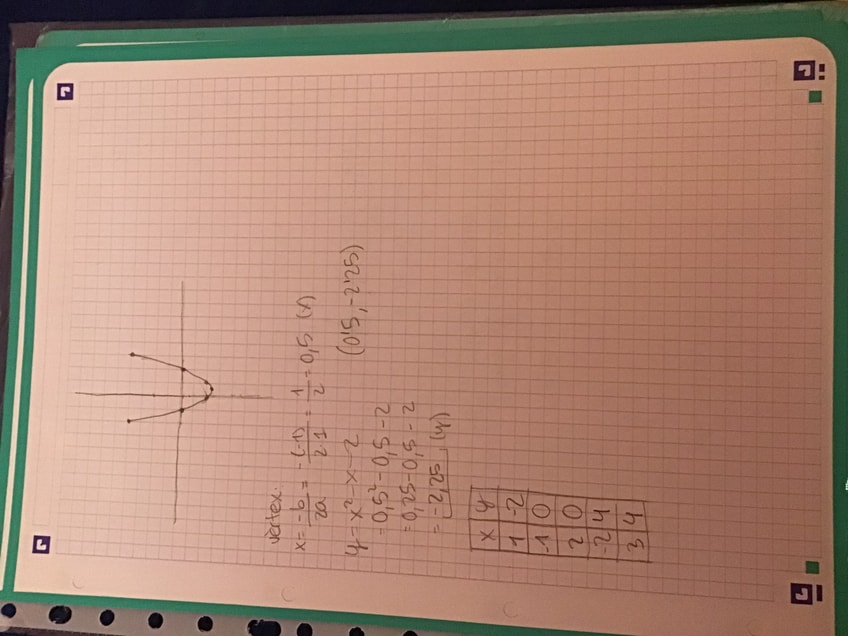 vèrtex.
x = -b/2a = -(-1)/2·1 = 1/2 = 0,5 (x)
y = x² - x - 2 (0'5, -2'25)
= 0,5² - 0,5 - 2
= 0,25 - 0,5 - 2
= -2,25 (y)
x y
1 -2
-1 0
2 0
-2 4
3 4